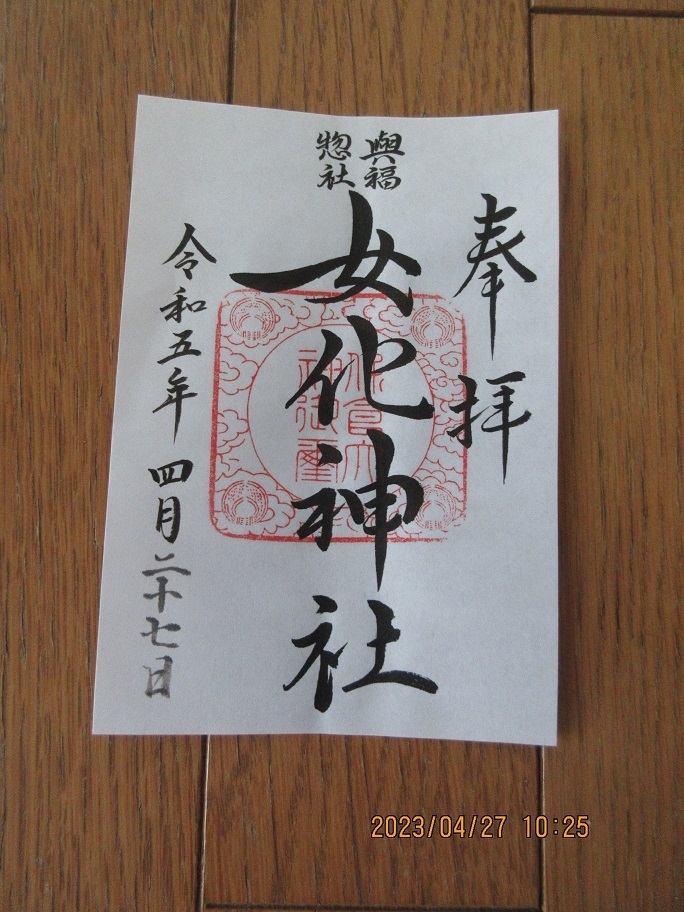 奉拝
與福
惣社
女化神社
令和五年 四月二十七日
2023/04/27 10:25